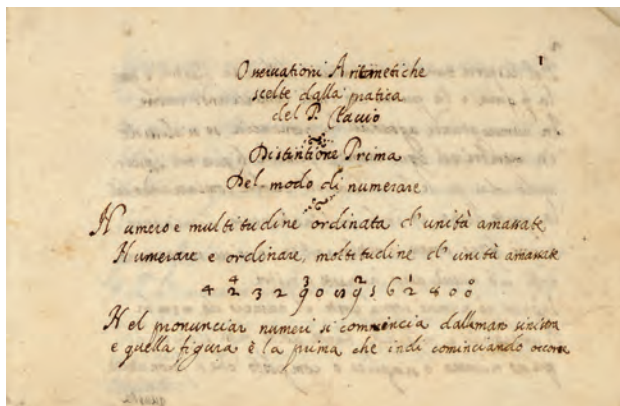 1
Osservationi Aritmetiche
scelte dalla pratica
del P. Clavio
Distintione Prima
Del modo di numerare
Numero e multitudine ordinata d'unità amassate
Numerare e ordinare, moltitudine d'unità amassate
4 3 2 1 0
4 2 3 2 9 0 5 9 5 6 2 4 0 0
Nel pronunciar numeri si commincia dalla man sinistra
e quella figura è la prima che indi cominciando occorre